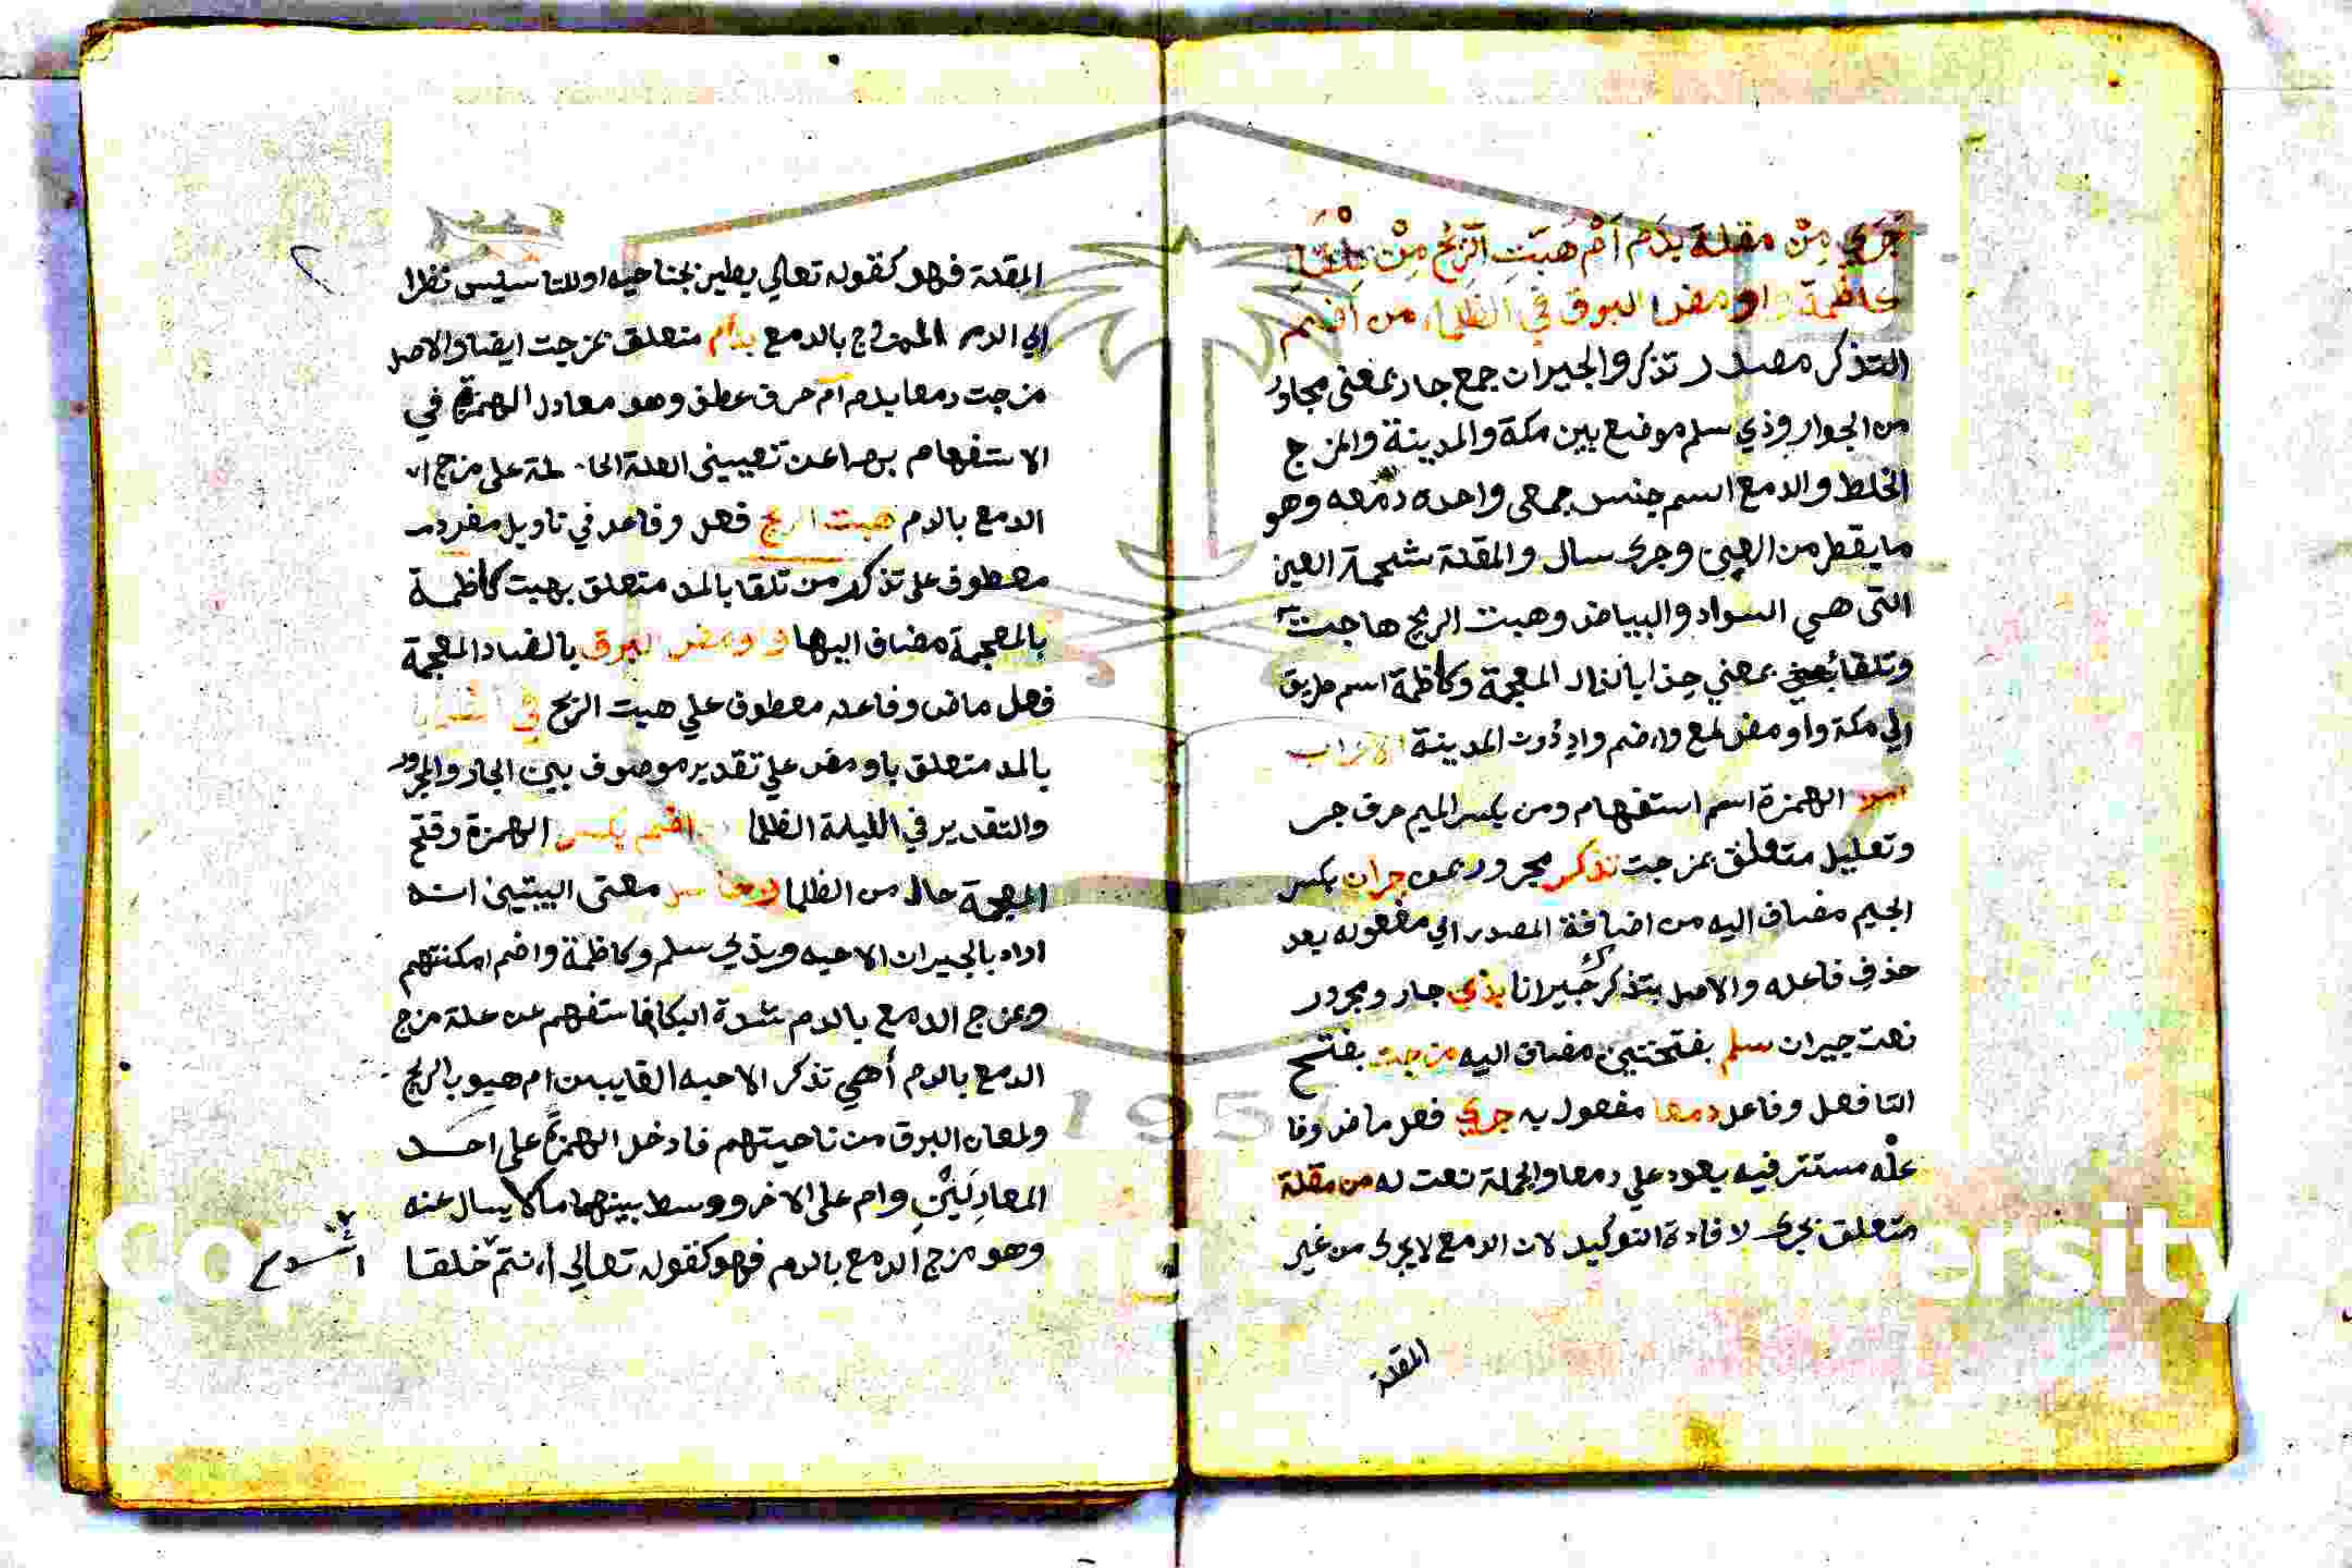 جَرَي مِنْ مقلة بدَم اَمْ هَبَّتِ الرّيحُ مِنْ تِلْقَاءِ
كاظمة واومض البرق في الظلماء من اضم
التذكر مصدر تذكر والجيران جمع جار بمعنى مجاور
من الجوار وذي سلم موضع بين مكة والمدينة والمزج
الخلط والدمع اسم جنس جمعى واحده دمعه وهو
ما يقطر من العين وجرى سال والمقلة شحمة العين
التى هي السواد والبياض وهبت الريح هاجت
وتلقا بمعني حذا بالذال المعجمة وكاظمة اسم طريق
الي مكة واومض لمع واضم واد دون المدينة الاعراب
الهمزة اسم استفهام ومن بكسر الميم حرف جر
وتعليل متعلق بمزجت تذكر مجرور بمن جران بكسر
الجيم مضاف اليه من اضافة المصدر الي مفعوله بعد
حذف فاعله والاصل بتذكرك جيرانا بذي جار ومجرور
نعت جيران سلم بفتحتين مضاف اليه مزجت بفتح
التا فعل وفاعل دمعا مفعول به جري فعل ماض وفا
عله مستتر فيه يعود علي دمعا والجملة نعت له من مقلة
متعلق بجرى لافادة التوكيد لان الدمع لا يجرى من غير
المقلة
المقلة فهو كقوله تعالي يطير بجناحيه او للتاسيس نظرا
الي الدم الممتزج بالدمع بدم متعلق بمزجت ايضا والاصل
مزجت دمعا بدم ام حرف عطف وهو معادل الهمزة في
الاستفهام بها عن تعيين العلة الحاملة على مزج
الدمع بالدم هبت الريح فعل وفاعل في تاويل مفرد
معطوف على تذكر من تلقا بالمد متعلق بهبت كاظمة
بالمعجمة مضاف اليها واومض البرق بالضاد المعجمة
فعل ماض وفاعله معطوف علي هبت الريح في الظلما
بالمد متعلق باومض علي تقدير موصوف بين الجار والمجرور
والتقدير في الليلة الظلما من اضم بكسر الهمزة وفتح
المعجمة حال من الظلما ومعنى البيتين انه
اراد بالجيران الاحبه وبذي سلم وكاظمة واضم امكنتهم
وبمزج الدمع بالدم شدة البكا فاستفهم عن علة مزج
الدمع بالدم أهي تذكر الاحبه الغايبين ام هبوب الريح
ولمعان البرق من ناحيتهم فادخل الهمزة على احد
المعادِلَيْنِ وام على الاخر ووسط بينهما ما لا يسال عنه
وهو مزج الدمع بالدم فهو كقوله تعالي اانتم خلقا